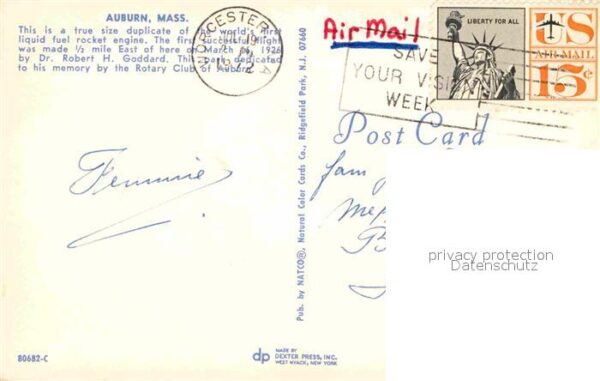 AUBURN, MASS.
This is a true size duplicate of the world's first
liquid fuel rocket engine. The first successful flight
was made ½ mile East of here on March 16, 1926
by Dr. Robert H. Goddard. This park dedicated
to his memory by the Rotary Club of Auburn.
Air Mail
LIBERTY FOR ALL
US
AIR MAIL
15¢
SAVE
YOUR VISION
WEEK
Post Card
Pub. by NATCO®, Natural Color Cards Co., Ridgefield Park, N.J. 07660
privacy protection
Datenschutz
80682-C
dp
MADE BY
DEXTER PRESS, INC.
WEST NYACK, NEW YORK